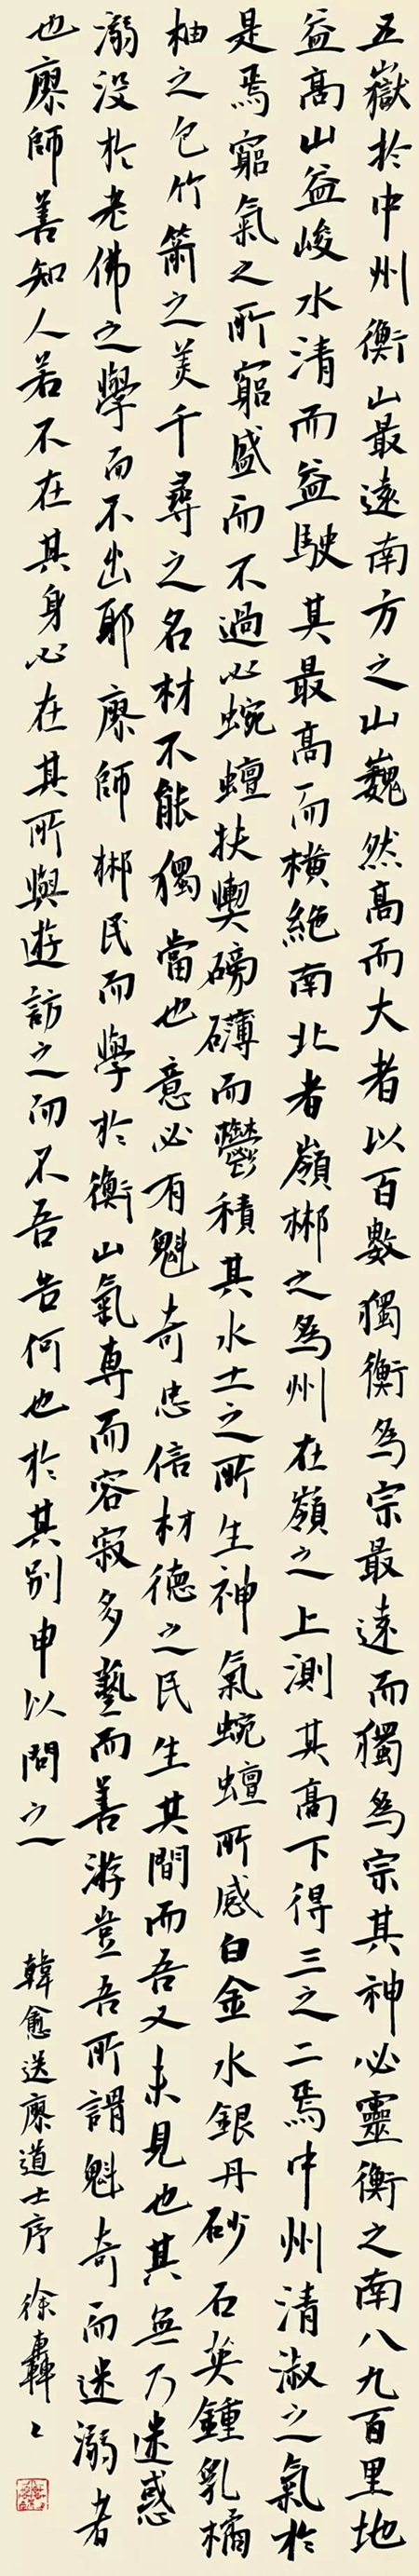 五嶽於中州衡山最遠南方之山巍然高而大者以百數獨衡為宗最遠而獨為宗其神必靈衡之南八九百里地
益高山益峻水清而益駛其最高而橫絕南北者嶺郴之為州在嶺之上測其高下得三之二焉中州清淑之氣於
是焉窮氣之所窮盛而不過必蜿蟺扶輿磅礴而鬱積其水土之所生神氣蜿蟺所感白金水銀丹砂石英鍾乳橘
柚之包竹箭之美千尋之名材不能獨當也意必有魁奇忠信材德之民生其間而吾又未見也其無乃迷惑
溺没於老佛之學而不出耶廖師郴民而學於衡山氣專而容寂多藝而善游豈吾所謂魁奇而迷溺者
也廖師善知人若不在其身必在其所與遊訪之而不吾告何也於其別申以問之
韓愈送廖道士序 徐轟